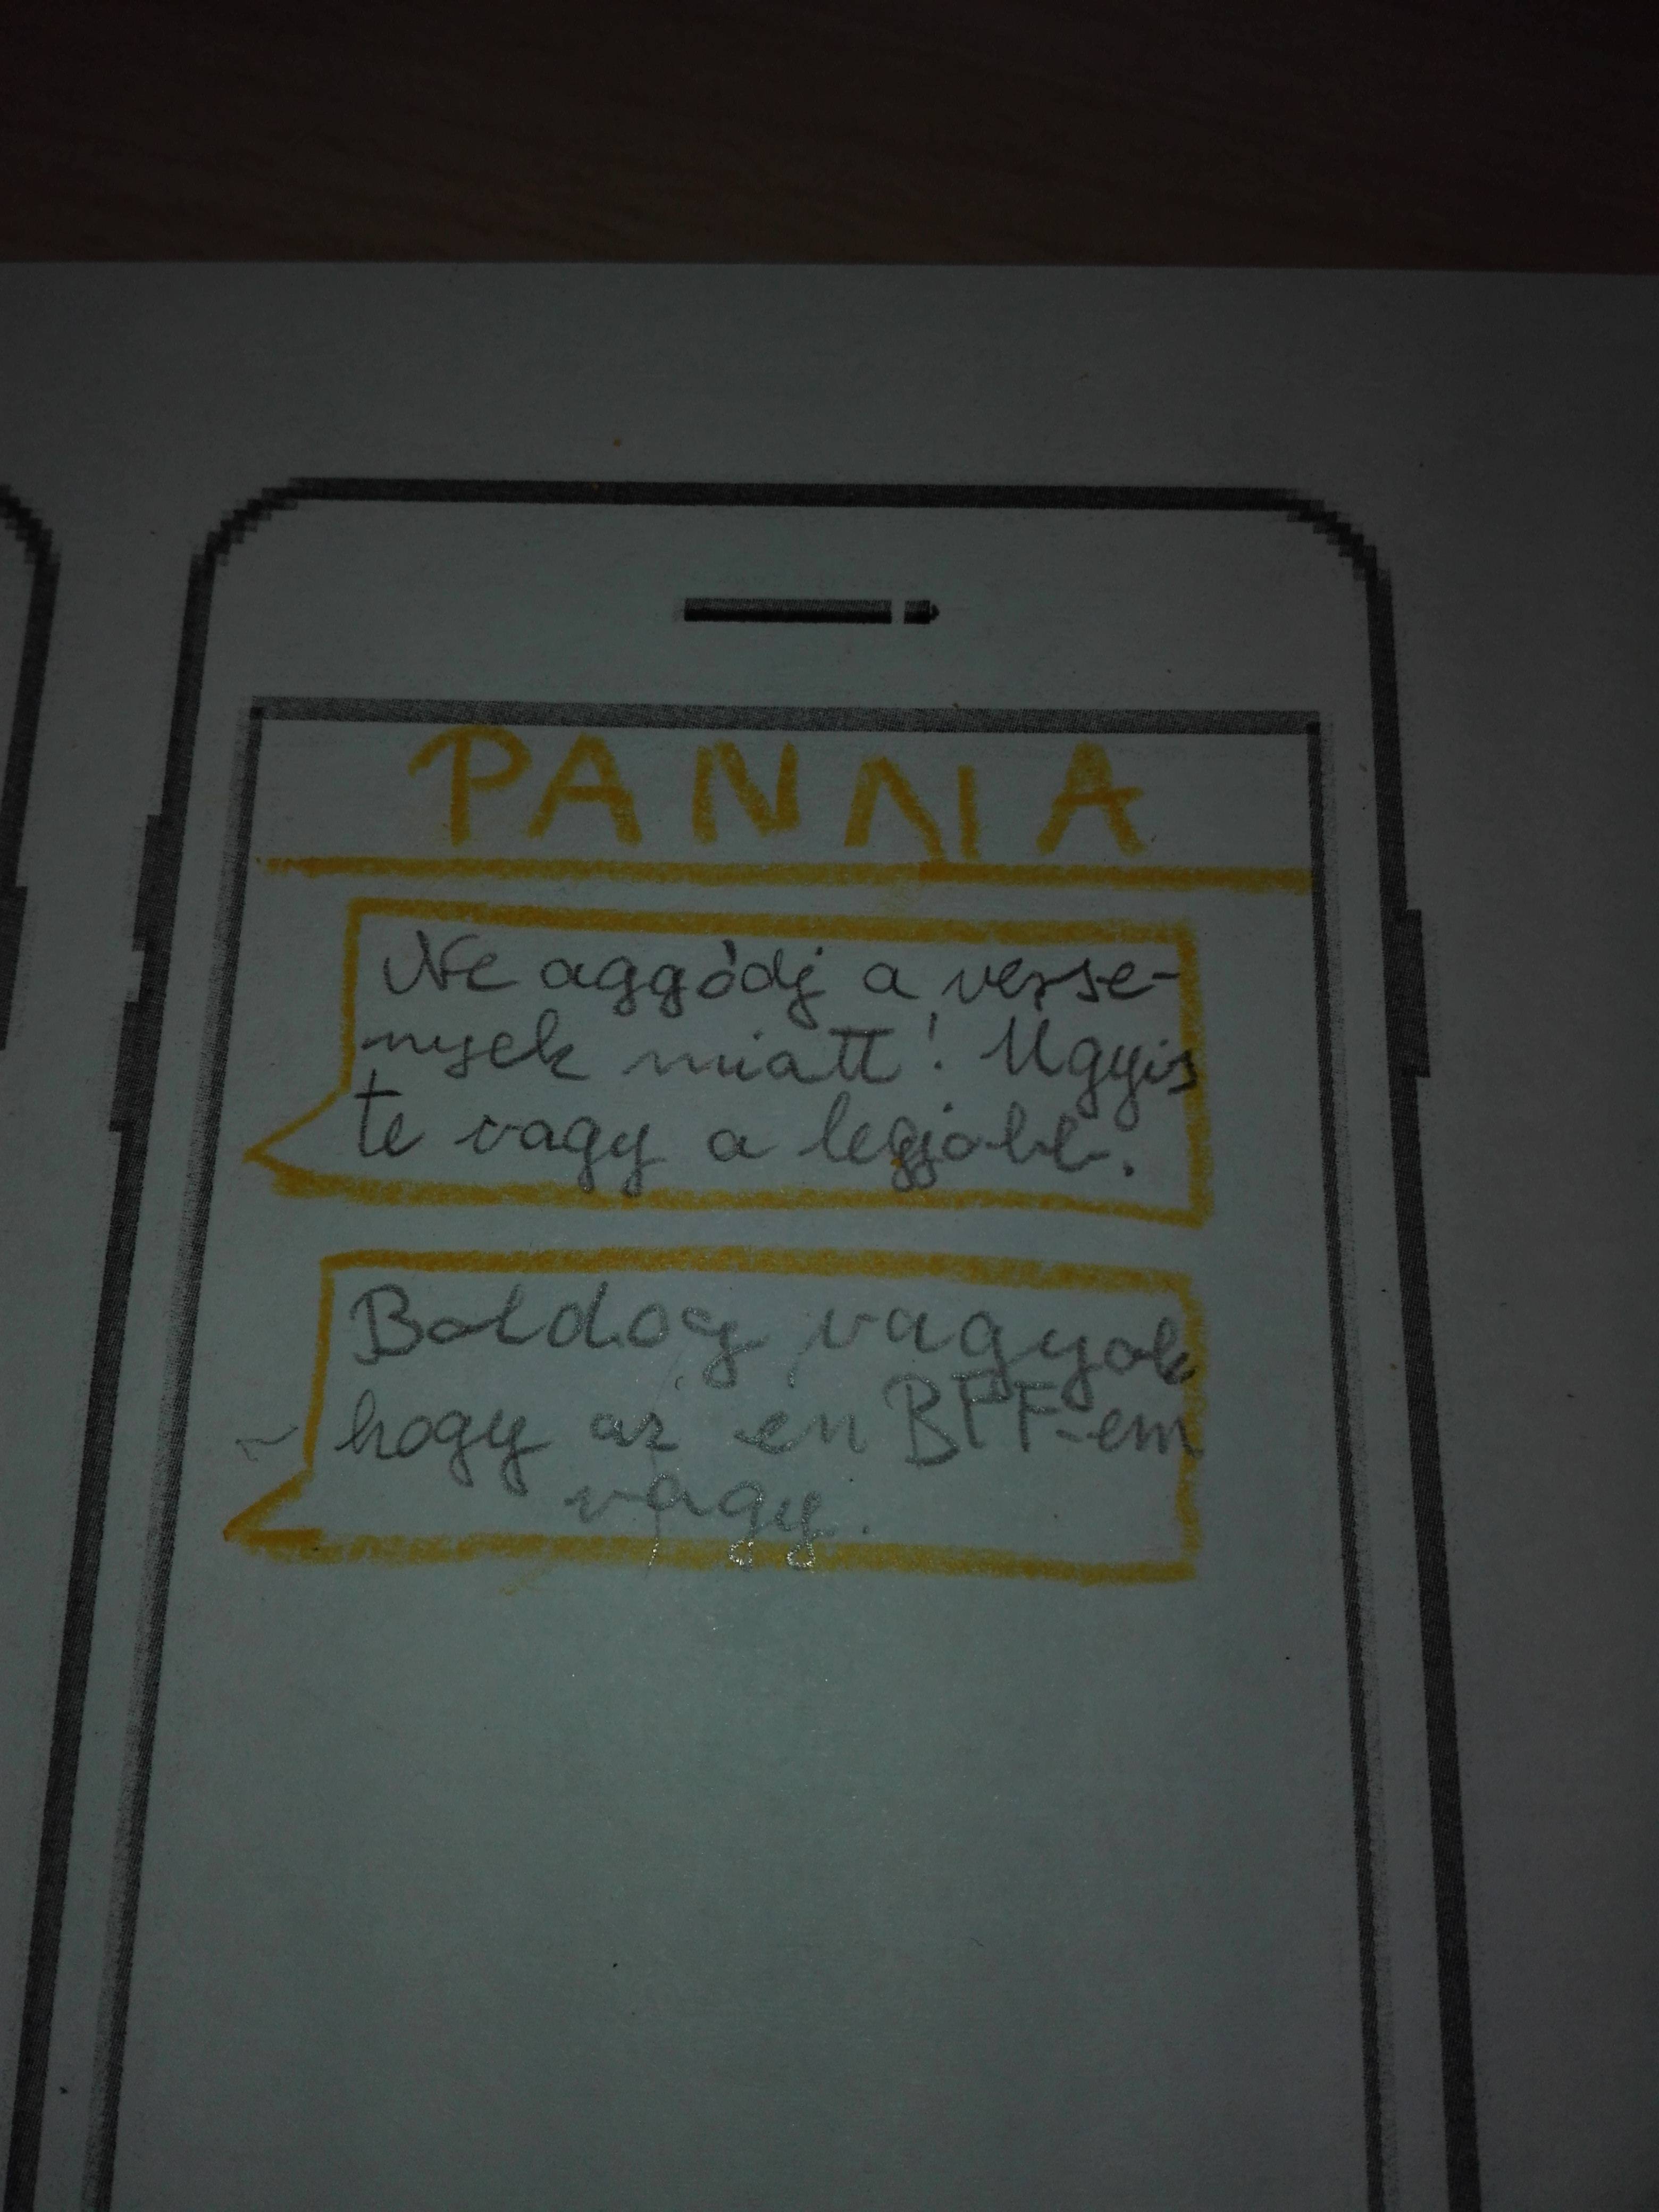 PANNA
Ne aggódj a verse-
nyek miatt! Ugyis
te vagy a legjobb.
Boldog vagyok
hogy az én BFF-em
vagy.